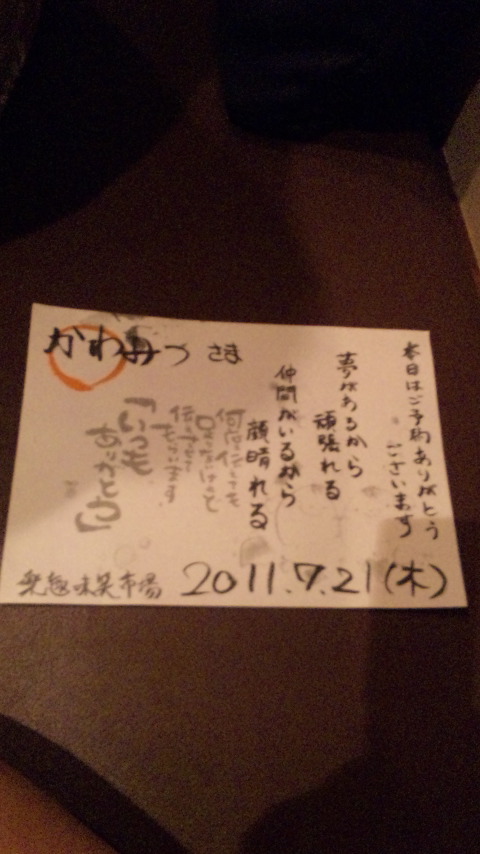 かわみつ さま
本日はご予約ありがとう
ございます
夢があるから
頑張れる
仲間がいるから
顔晴れる
何度でても
伝えさせて
もらいます
「いつも
ありがとう」
2011.7.21(木)